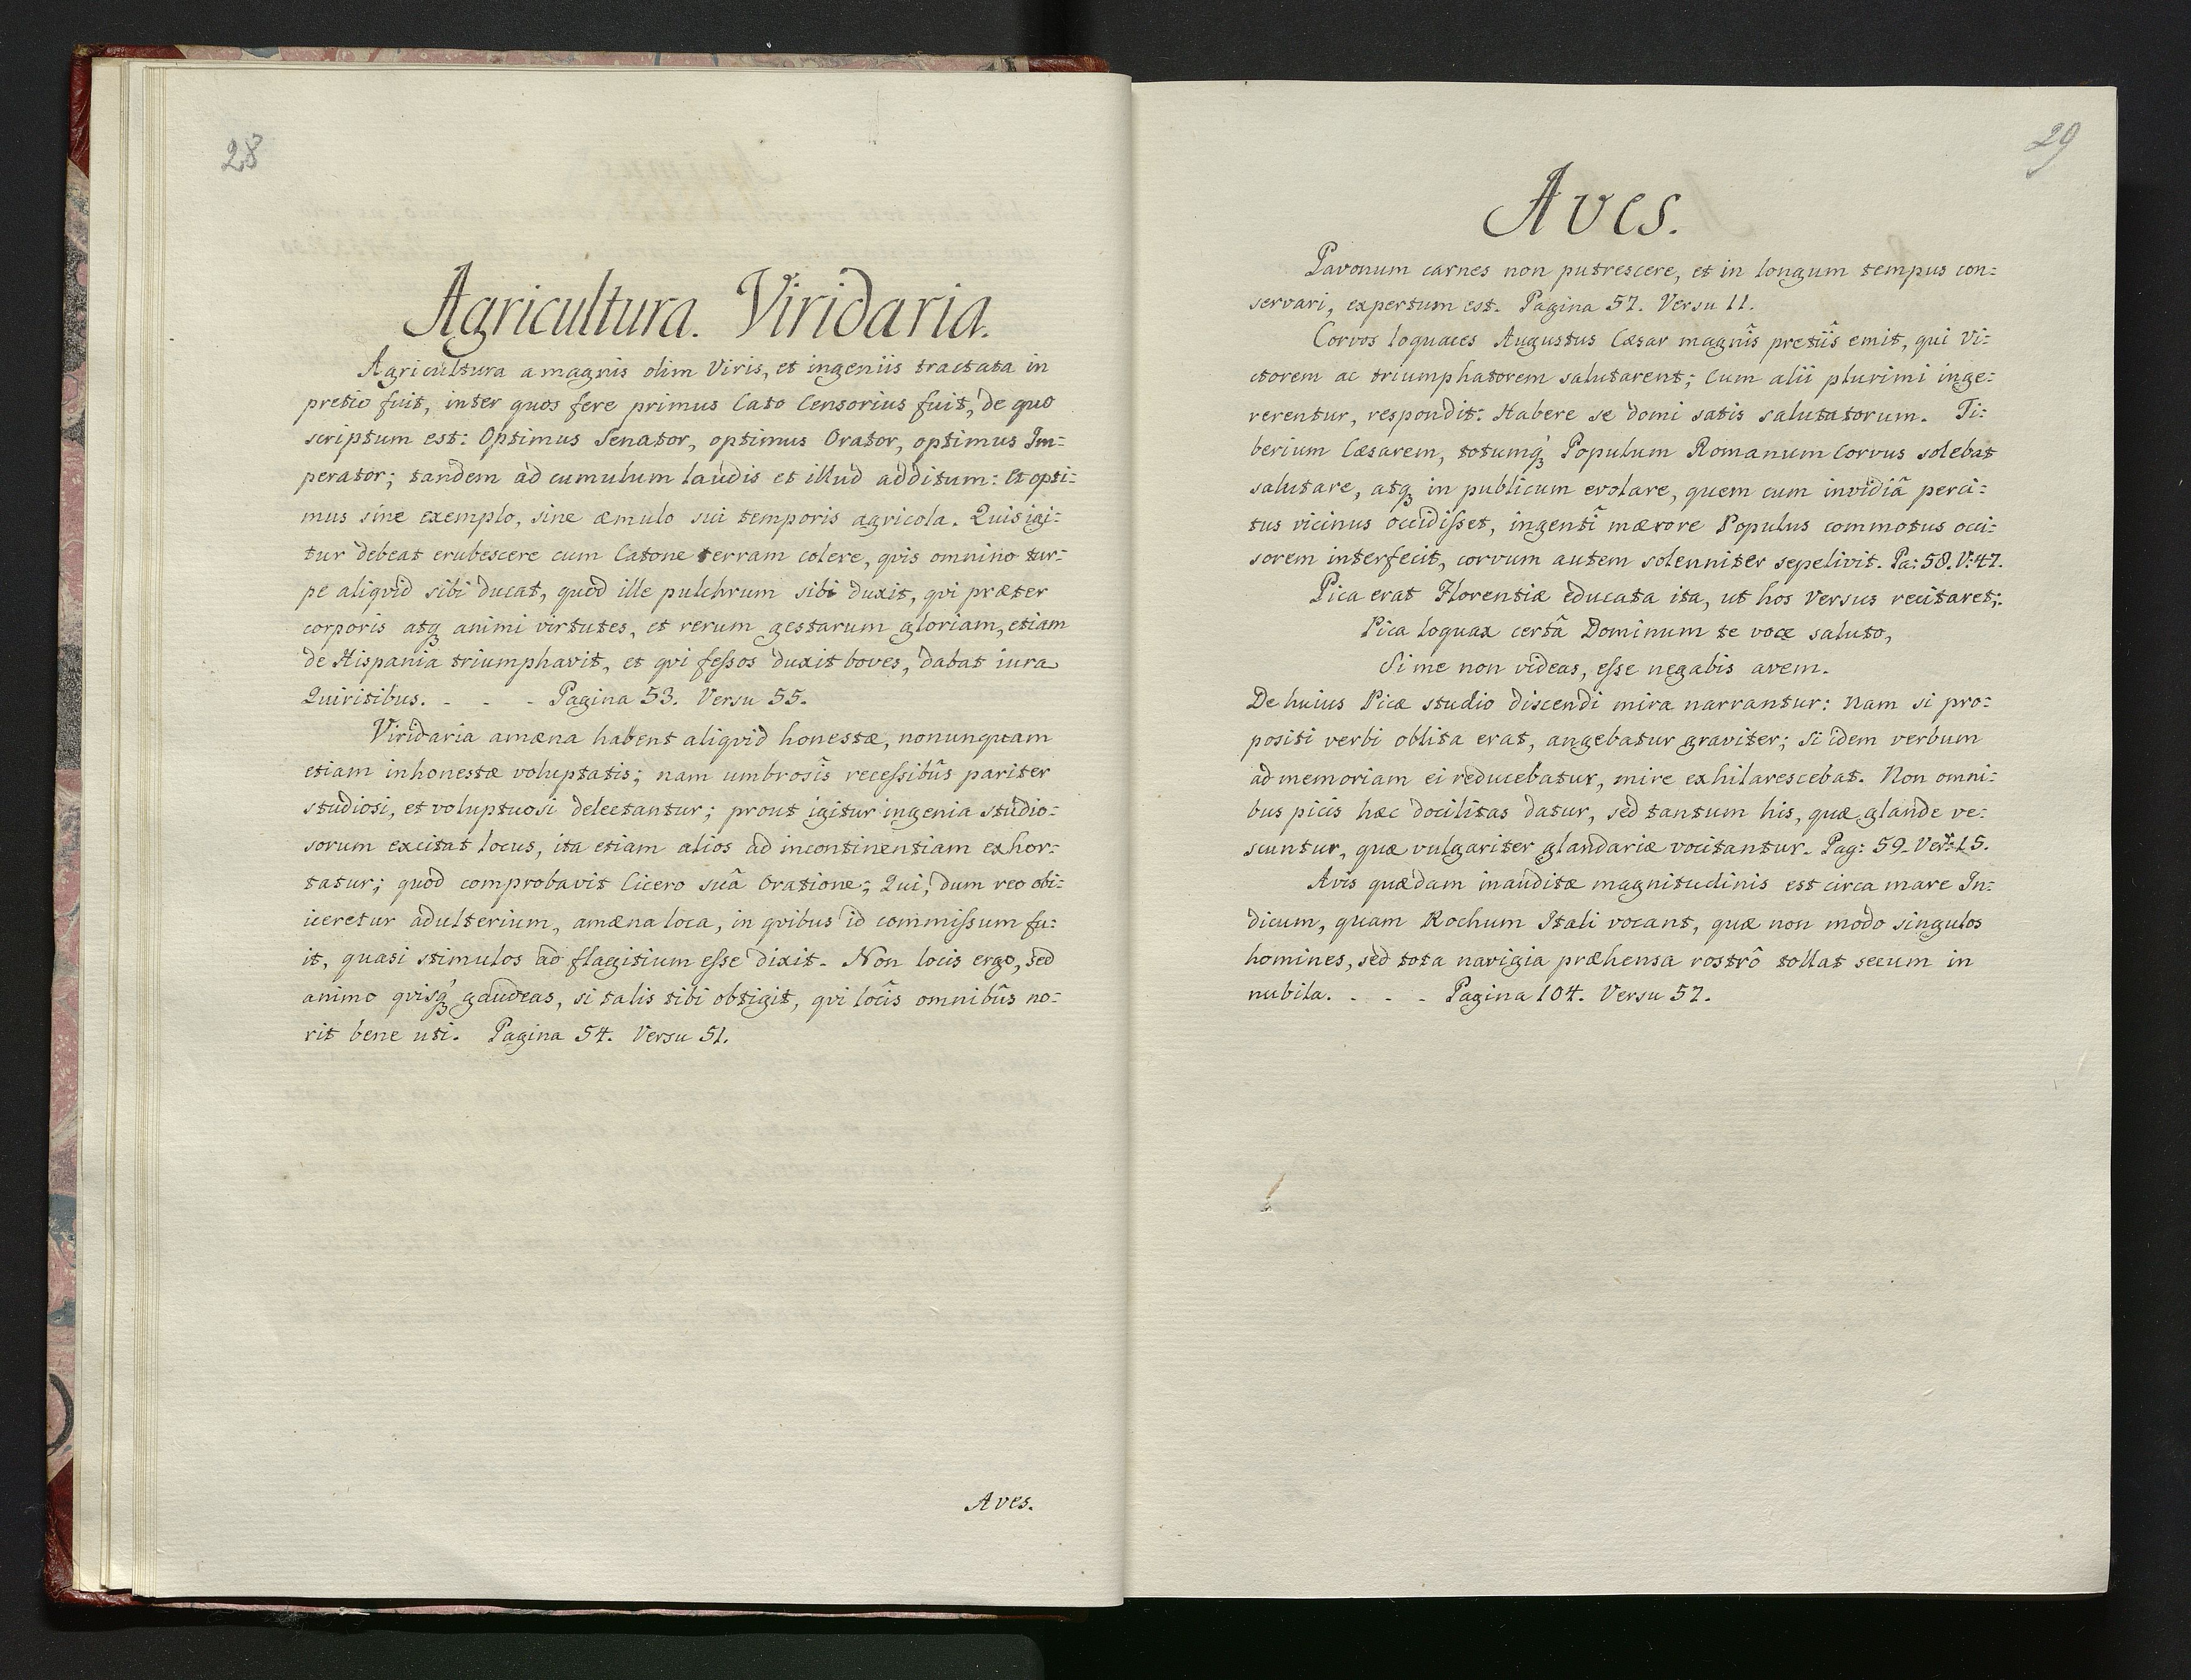 28
Agricultura. Viridaria.
Agricultura a magnis olim Viris, et ingeniis tractata in
pretio fuit, inter quos fere primus Cato Censorius fuit, de quo
scriptum est: Optimus Senator, optimus Orator, optimus Im=
perator; tandem ad cumulum laudis et illud additum: Et opti=
mus sine exemplo, sine æmulo sui temporis agricola. Quis igi=
tur debeat erubescere cum Catone terram colere, qvis omnino tur=
pe aliqvid sibi ducat, quod ille pulchrum sibi duxit, qvi præter
corporis atq₃ animi virtutes, et rerum gestarum gloriam, etiam
de Hispania triumphavit, et qvi feſsos duxit boves, dabat iura
Quiritibus. - - - Pagina 53. Versu 55.
Viridaria amæna habent aliqvid honestæ, nonunquam
etiam inhonestæ voluptatis; nam umbrosîs receſsibûs pariter
studiosi, et voluptuosi delectantur; prout igitur ingenia studio=
sorum excitat locus, ita etiam alios ad incontinentiam exhor=
tatur; quod comprobavit Cicero suâ Oratione; Qui, dum reo obi=
iceretur adulterium, amæna loca, in qvibus id commiſsum fu=
it, quasi stimulos ad flagitium eſse dixit. Non locis ergo, sed
animo qvisq₃́ gaudeas, si talis tibi obtigit, qvi locîs omnibûs no=
rit bene uti. Pagina 54. Versu 51.
Aves.
29
Aves.
Pavonum carnes non putrescere, et in longum tempus con=
servari, expertum est. Pagina 57. Versu 11.
Corvos loquaces Augustus Cæsar magnîs pretiîs emit, qui Vi=
ctorem ac triumphatorem salutarent; Cum alii plurimi inge=
rerentur, respondit: Habere se domi satis salutatorum. Ti=
berium Cæsarem, totumq₃́ Populum Romanum Corvus solebat
salutare, atq₃ in publicum evolare, quem cum invidiâ perci=
tus vicinus occidiſset, ingentî mærore Populus commotus occi=
sorem interfecit, corvum autem solenniter sepelivit. Pa: 58. V: 47.
Pica erat Florentiæ educata ita, ut hos Versus recitaret;
Pica loquax certâ Dominum te voce saluto,
Si me non videas, eſse negabis avem.
De huius Picæ studio discendi mira narrantur: Nam si pro=
positi verbi oblita erat, angebatur graviter; Si idem verbum
ad memoriam ei reducebatur, mire exhilarescebat. Non omni=
bus picis hæc docilitas datur, sed tantum his, quæ glande ve=
scuntur, quæ vulgariter glandariæ vocitantur. Pag: 59. Ver: 15.
Avis quædam inauditæ magnitudinis est circa mare In=
dicum, quam Rochum Itali vocant, quæ non modo singulos
homines, sed tota navigia præhensa rostrô tollat secum in
nubila. - - - Pagina 104. Versu 57.